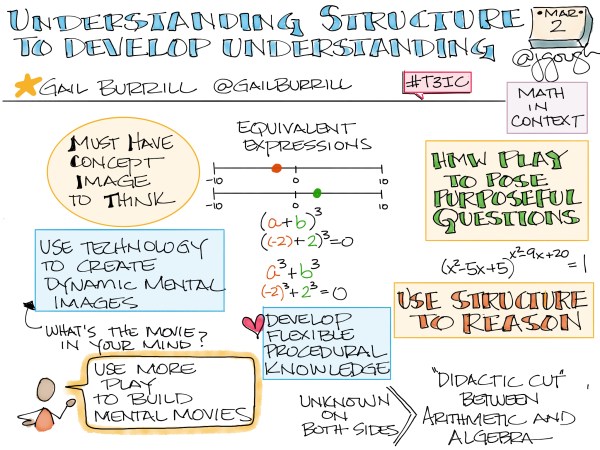 UNDERSTANDING STRUCTURE
TO DEVELOP UNDERSTANDING
•MAR•
2
@jgough
GAIL BURRILL @GAILBURRILL
#T3IC
MATH
IN
CONTEXT
MUST HAVE
CONCEPT
IMAGE
TO THINK
EQUIVALENT
EXPRESSIONS
-10 0 10
-10 0 10
(a+b)³
((-2)+2)³=0
a³+b³
(-2)³+2³=0
HMW PLAY
TO POSE
PURPOSEFUL
QUESTIONS
(x²-5x+5)^(x²-9x+20) = 1
USE TECHNOLOGY
TO CREATE
DYNAMIC MENTAL
IMAGES
USE STRUCTURE
TO REASON
WHAT'S THE MOVIE
IN YOUR MIND?
DEVELOP
FLEXIBLE
PROCEDURAL
KNOWLEDGE
USE MORE
PLAY
TO BUILD
MENTAL MOVIES
UNKNOWN
ON
BOTH SIDES
"DIDACTIC CUT"
BETWEEN
ARITHMETIC AND
ALGEBRA